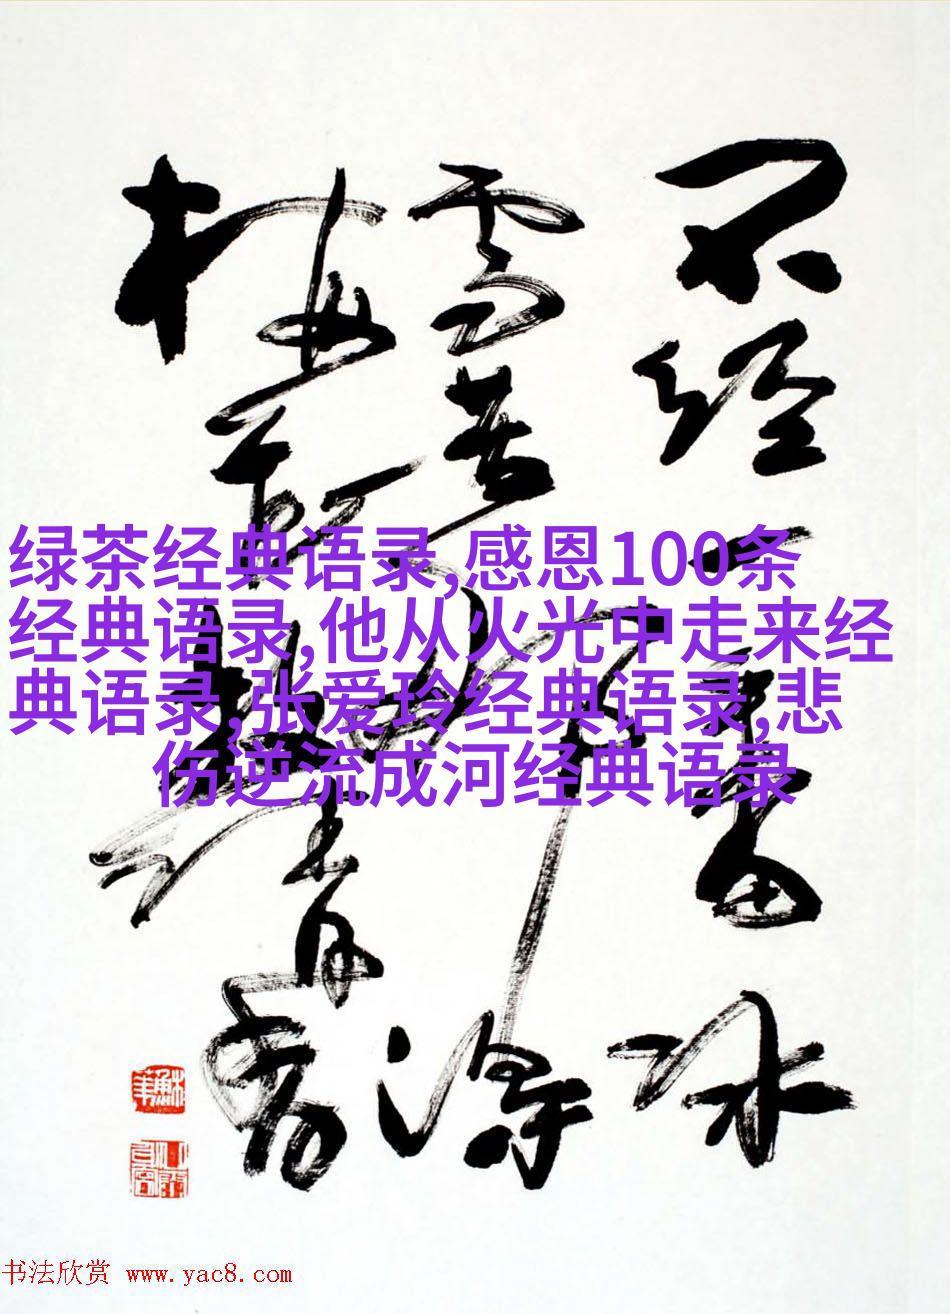 不经一番冰
雪苦得
梅清香
绿茶经典语录,感恩100条
经典语录,他从火光中走来经
典语录,张爱玲经典语录,悲
伤逆流成河经典语录
书法欣赏 www.yac8.com